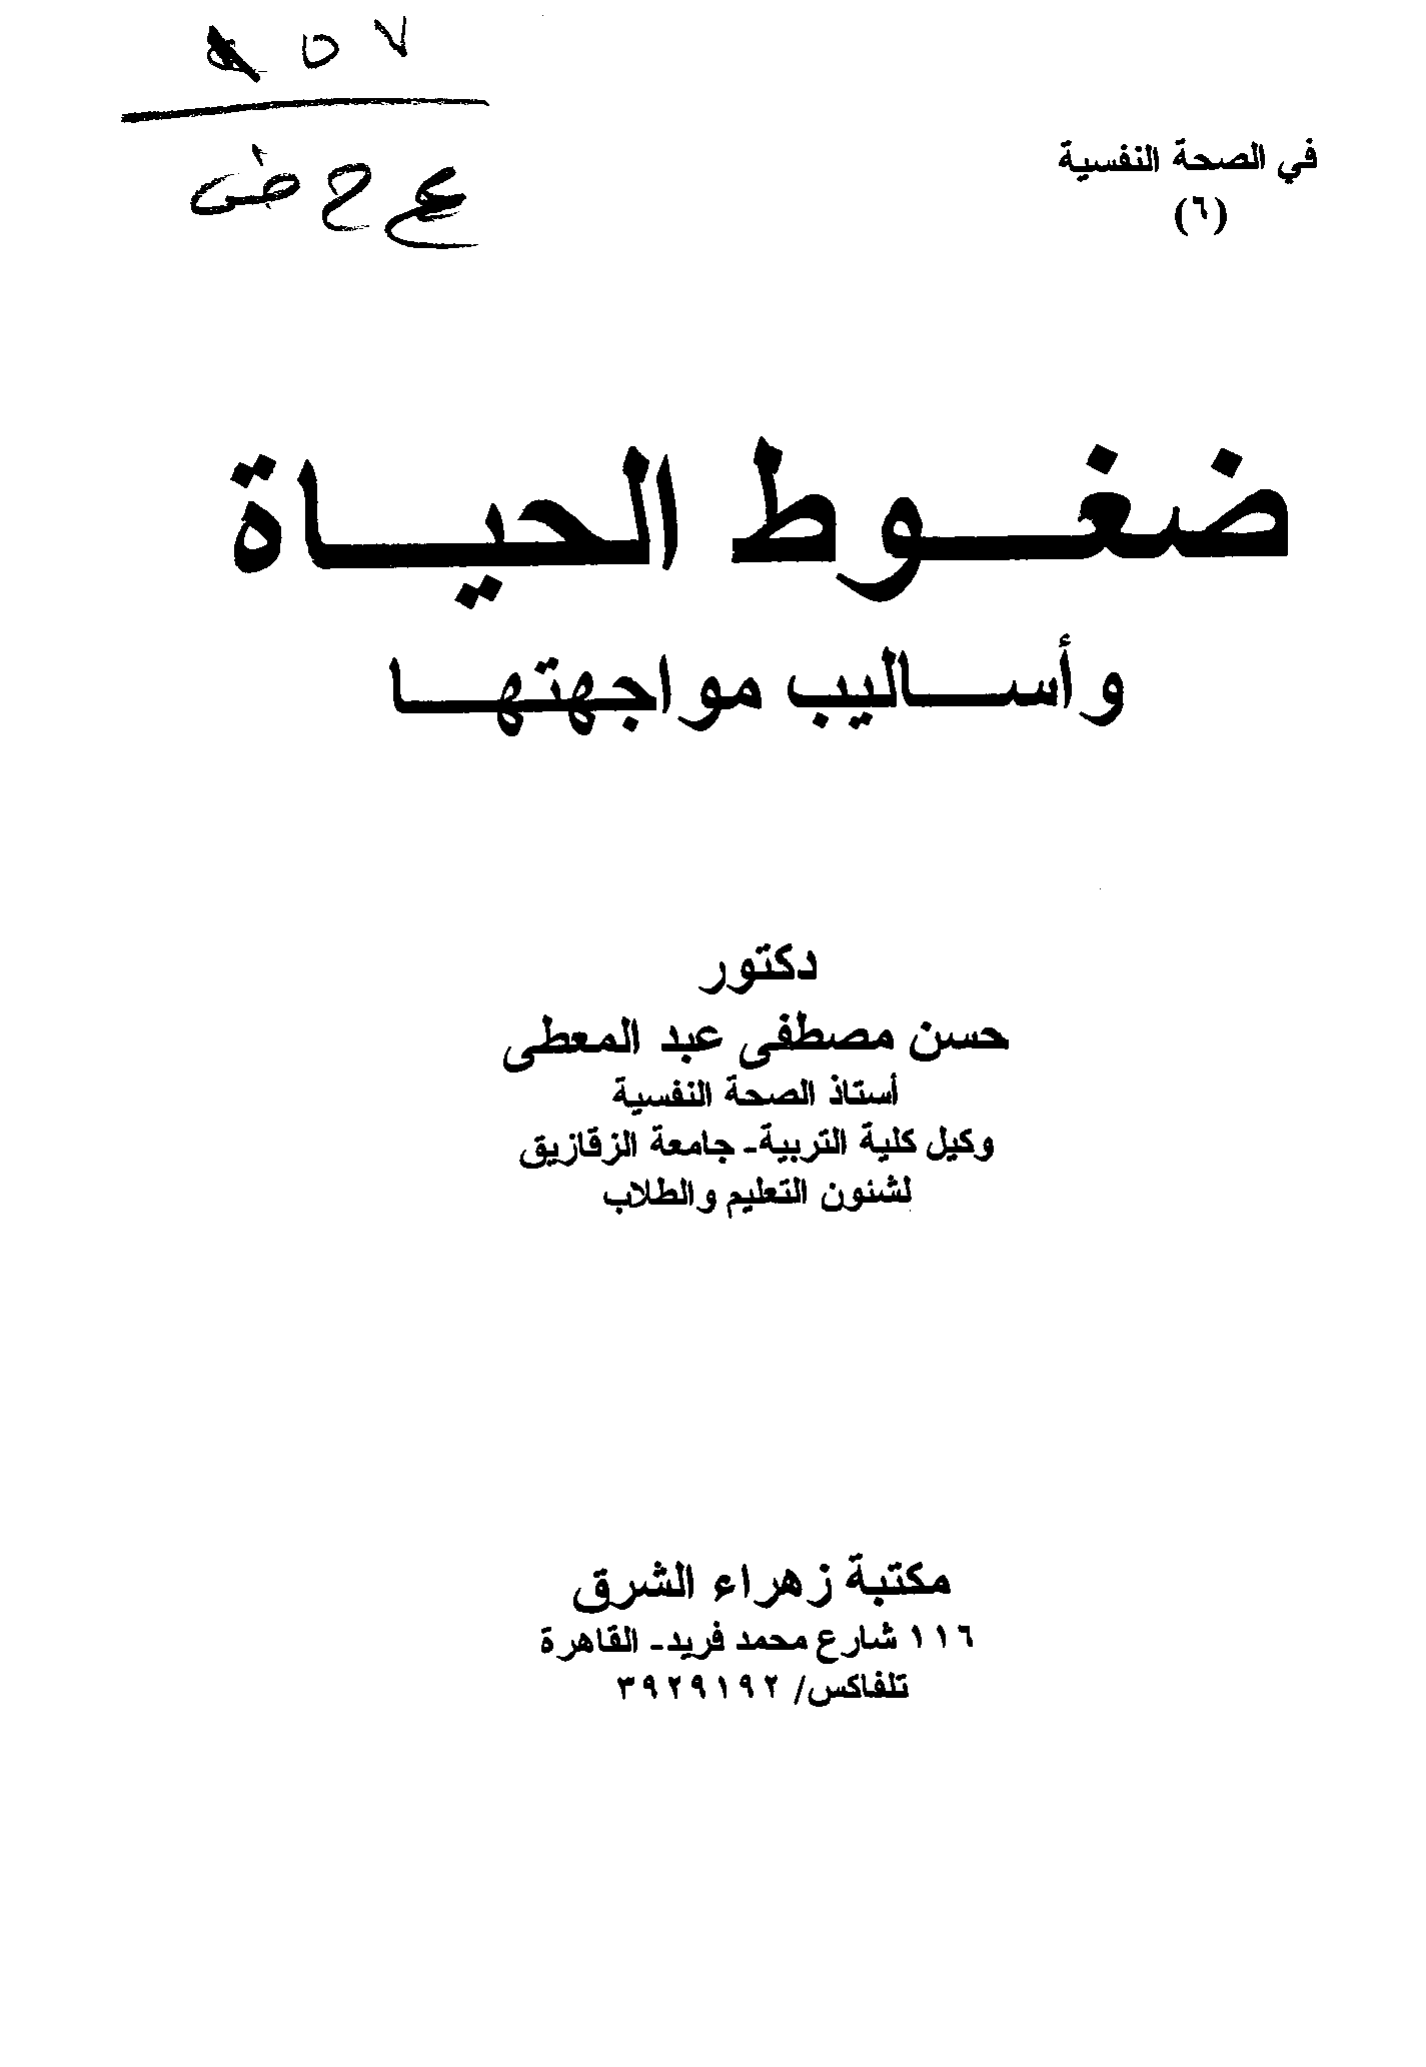 في الصحة النفسية
(٦)
ع ح ض
ضغــوط الحيــاة
وأســاليب مواجهتهــا
دكتور
حسن مصطفى عبد المعطى
أستاذ الصحة النفسية
وكيل كلية التربية- جامعة الزقازيق
لشئون التعليم والطلاب
مكتبة زهراء الشرق
١١٦ شارع محمد فريد- القاهرة
تلفاكس/ ٣٩٢٩١٩٢